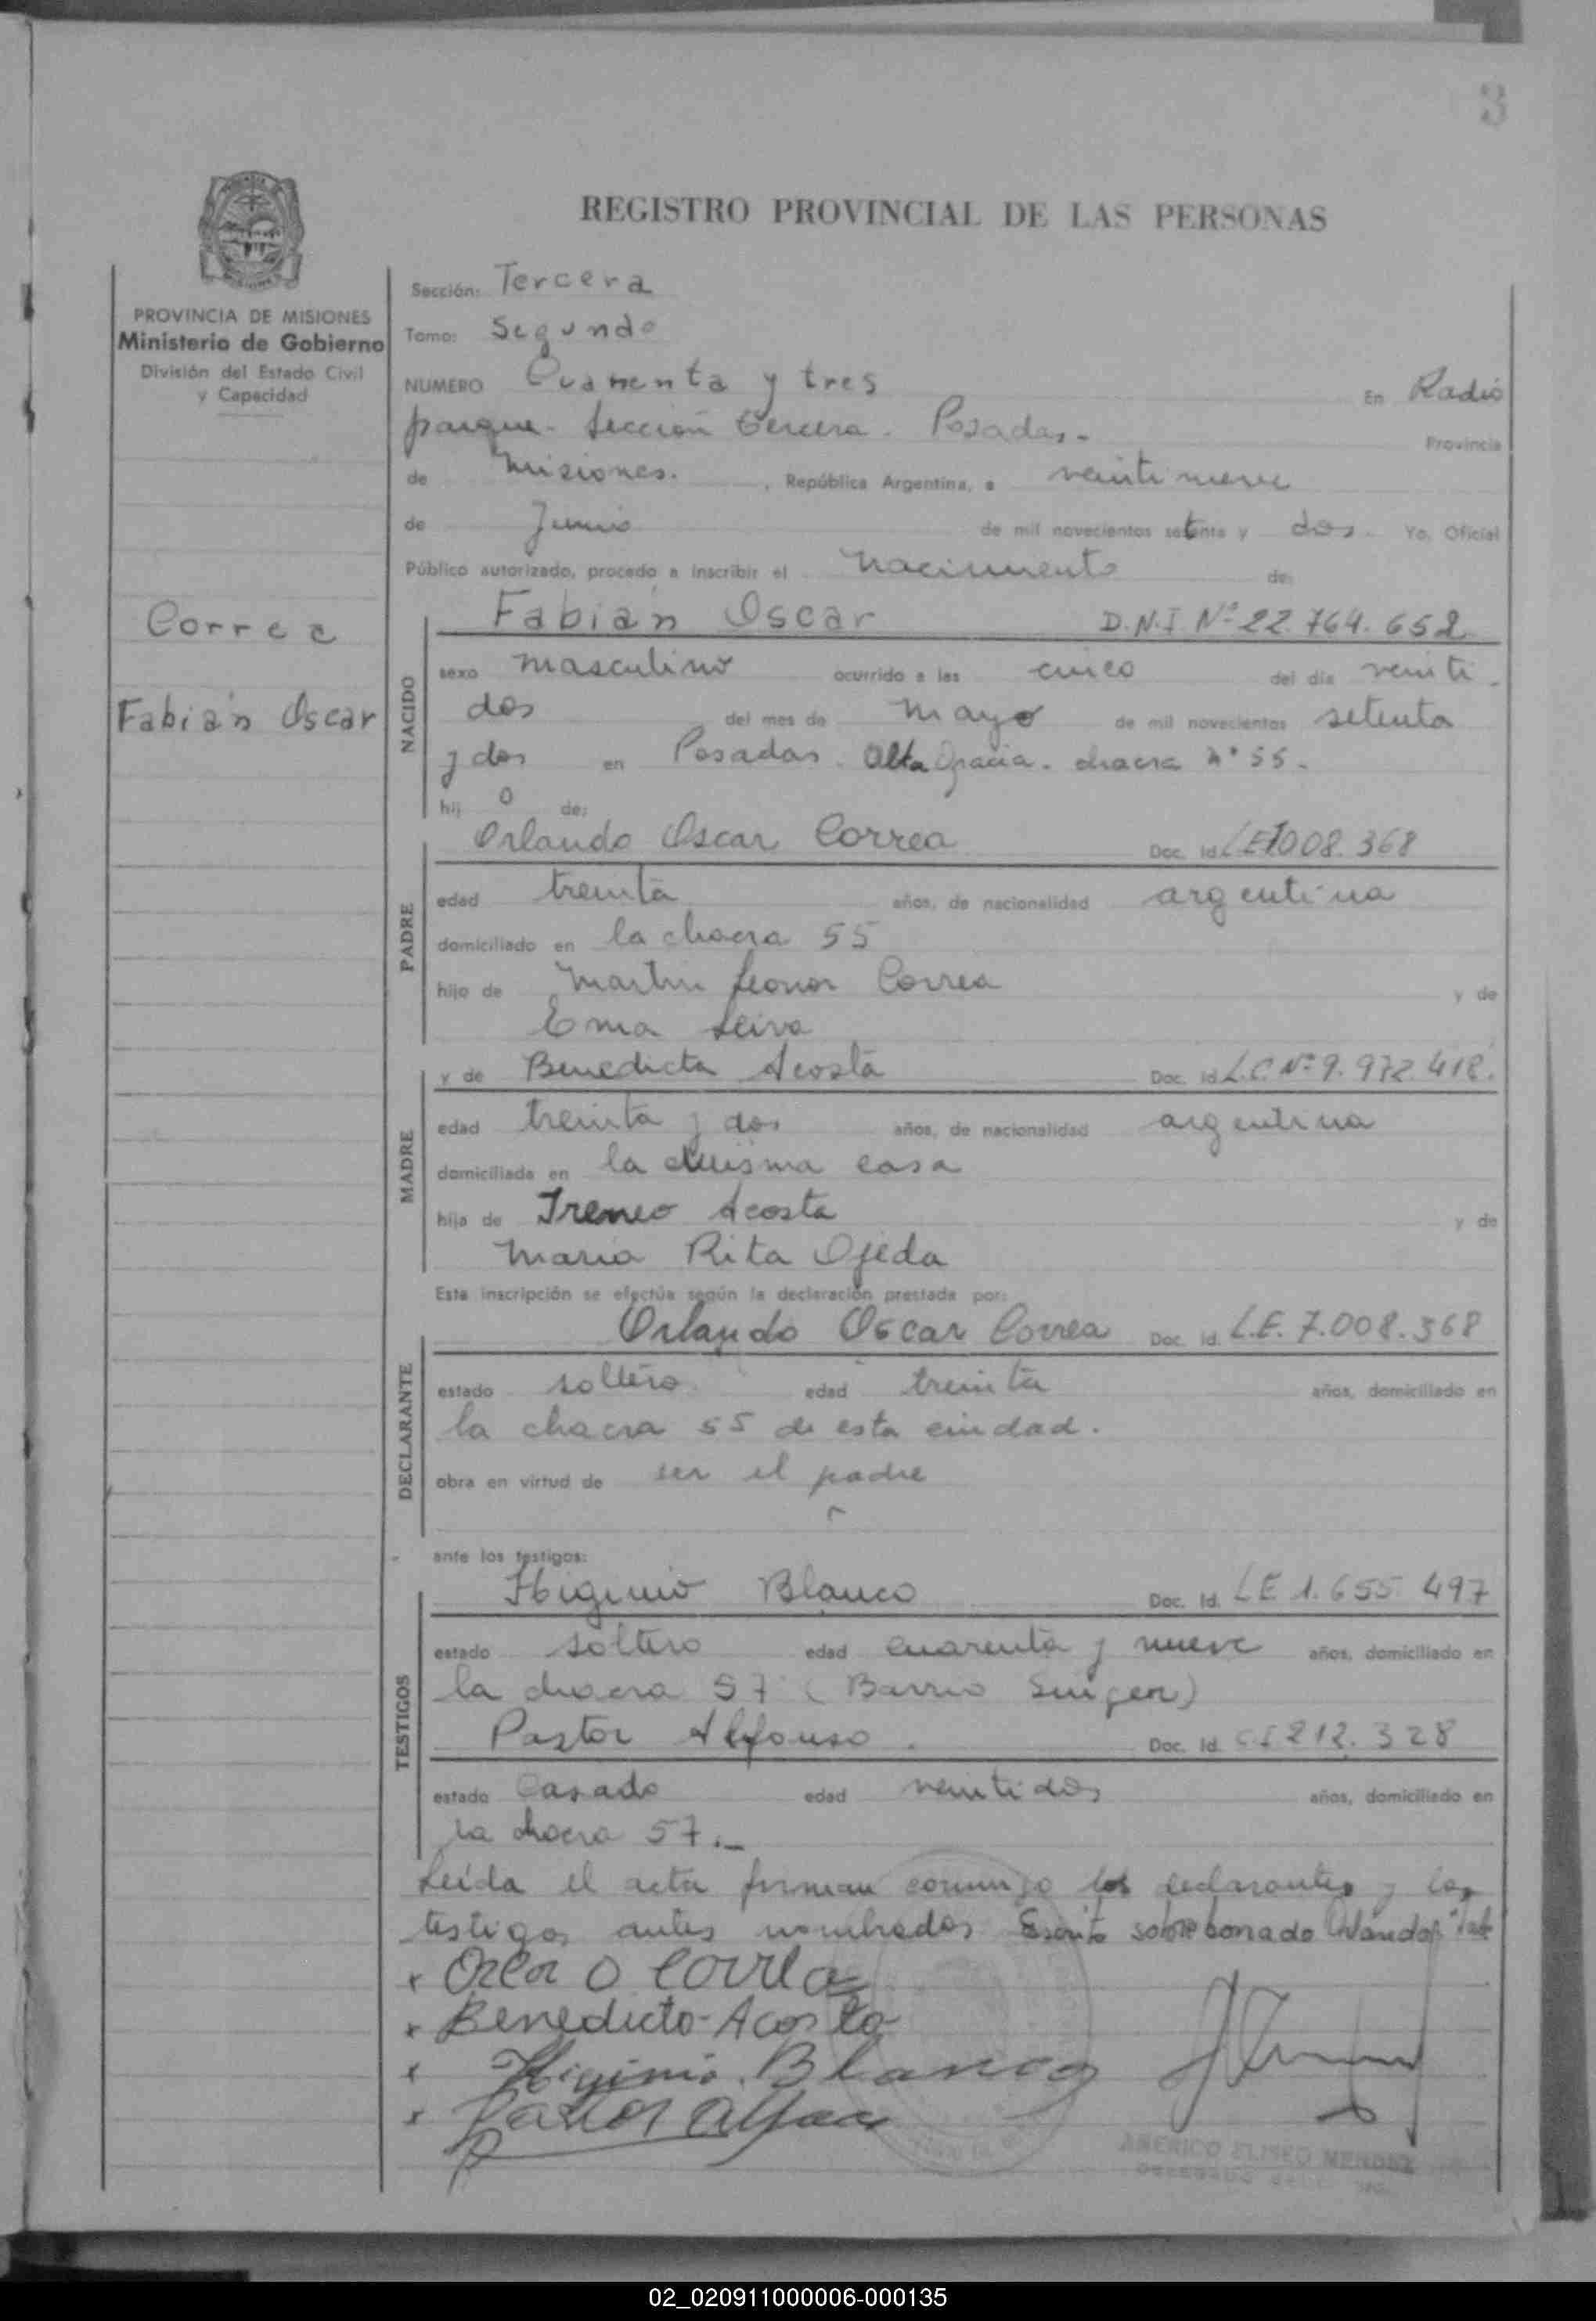 3
REGISTRO PROVINCIAL DE LAS PERSONAS
PROVINCIA DE MISIONES
Ministerio de Gobierno
División del Estado Civil
y Capacidad
Correa
Fabián Oscar
Sección: Tercera
Tomo: Segundo
NUMERO Cuarenta y tres En Radio
parque. Sección tercera. Posadas.- Provincia
de Misiones. , República Argentina, a veintinueve
de Junio de mil novecientos setenta y dos. Yo, Oficial
Público autorizado, procedo a inscribir el nacimiento de:
NACIDO
Fabián Oscar D.N.I. Nº 22.764.652
sexo masculino ocurrido a las cinco del día veinti-
dos del mes de mayo de mil novecientos setenta
y dos en Posadas. Alta Gracia. chacra Nº 55.
hij o de:
PADRE
Orlando Oscar Correa Doc. Id. LE 7.008.368
edad treinta años, de nacionalidad argentina
domiciliado en la chacra 55
hijo de Martin Leonor Correa y de
Ema Leiva
MADRE
y de Benedicta Acosta Doc. Id. L.C. Nº 9.972.418.
edad treinta y dos años, de nacionalidad argentina
domiciliada en la misma casa
hija de Ireneo Acosta y de
Maria Rita Ojeda
Esta inscripción se efectúa según la declaración prestada por:
DECLARANTE
Orlando Oscar Correa Doc. Id. L.E. 7.008.368
estado soltero edad treinta años, domiciliado en
la chacra 55 de esta ciudad.
obra en virtud de ser el padre
ante los testigos:
TESTIGOS
Higinio Blanco Doc. Id. LE 1.655.497
estado soltero edad cuarenta y nueve años, domiciliado en
la chacra 57 (Barrio Singer)
Pastor Alfonso. Doc. Id. CI 212.328
estado Casado edad veintidos años, domiciliado en
la chacra 57.-
Leída el acta firman conmigo los declarantes y los
testigos antes nombrados Escrito sobreborrado Orlando
x Orlan O Correa
x Benedicta-Acosta
x Higinio. Blanco
x Pastor Alfonso
AMERICO ELISEO MENDEZ
02_020911000006-000135